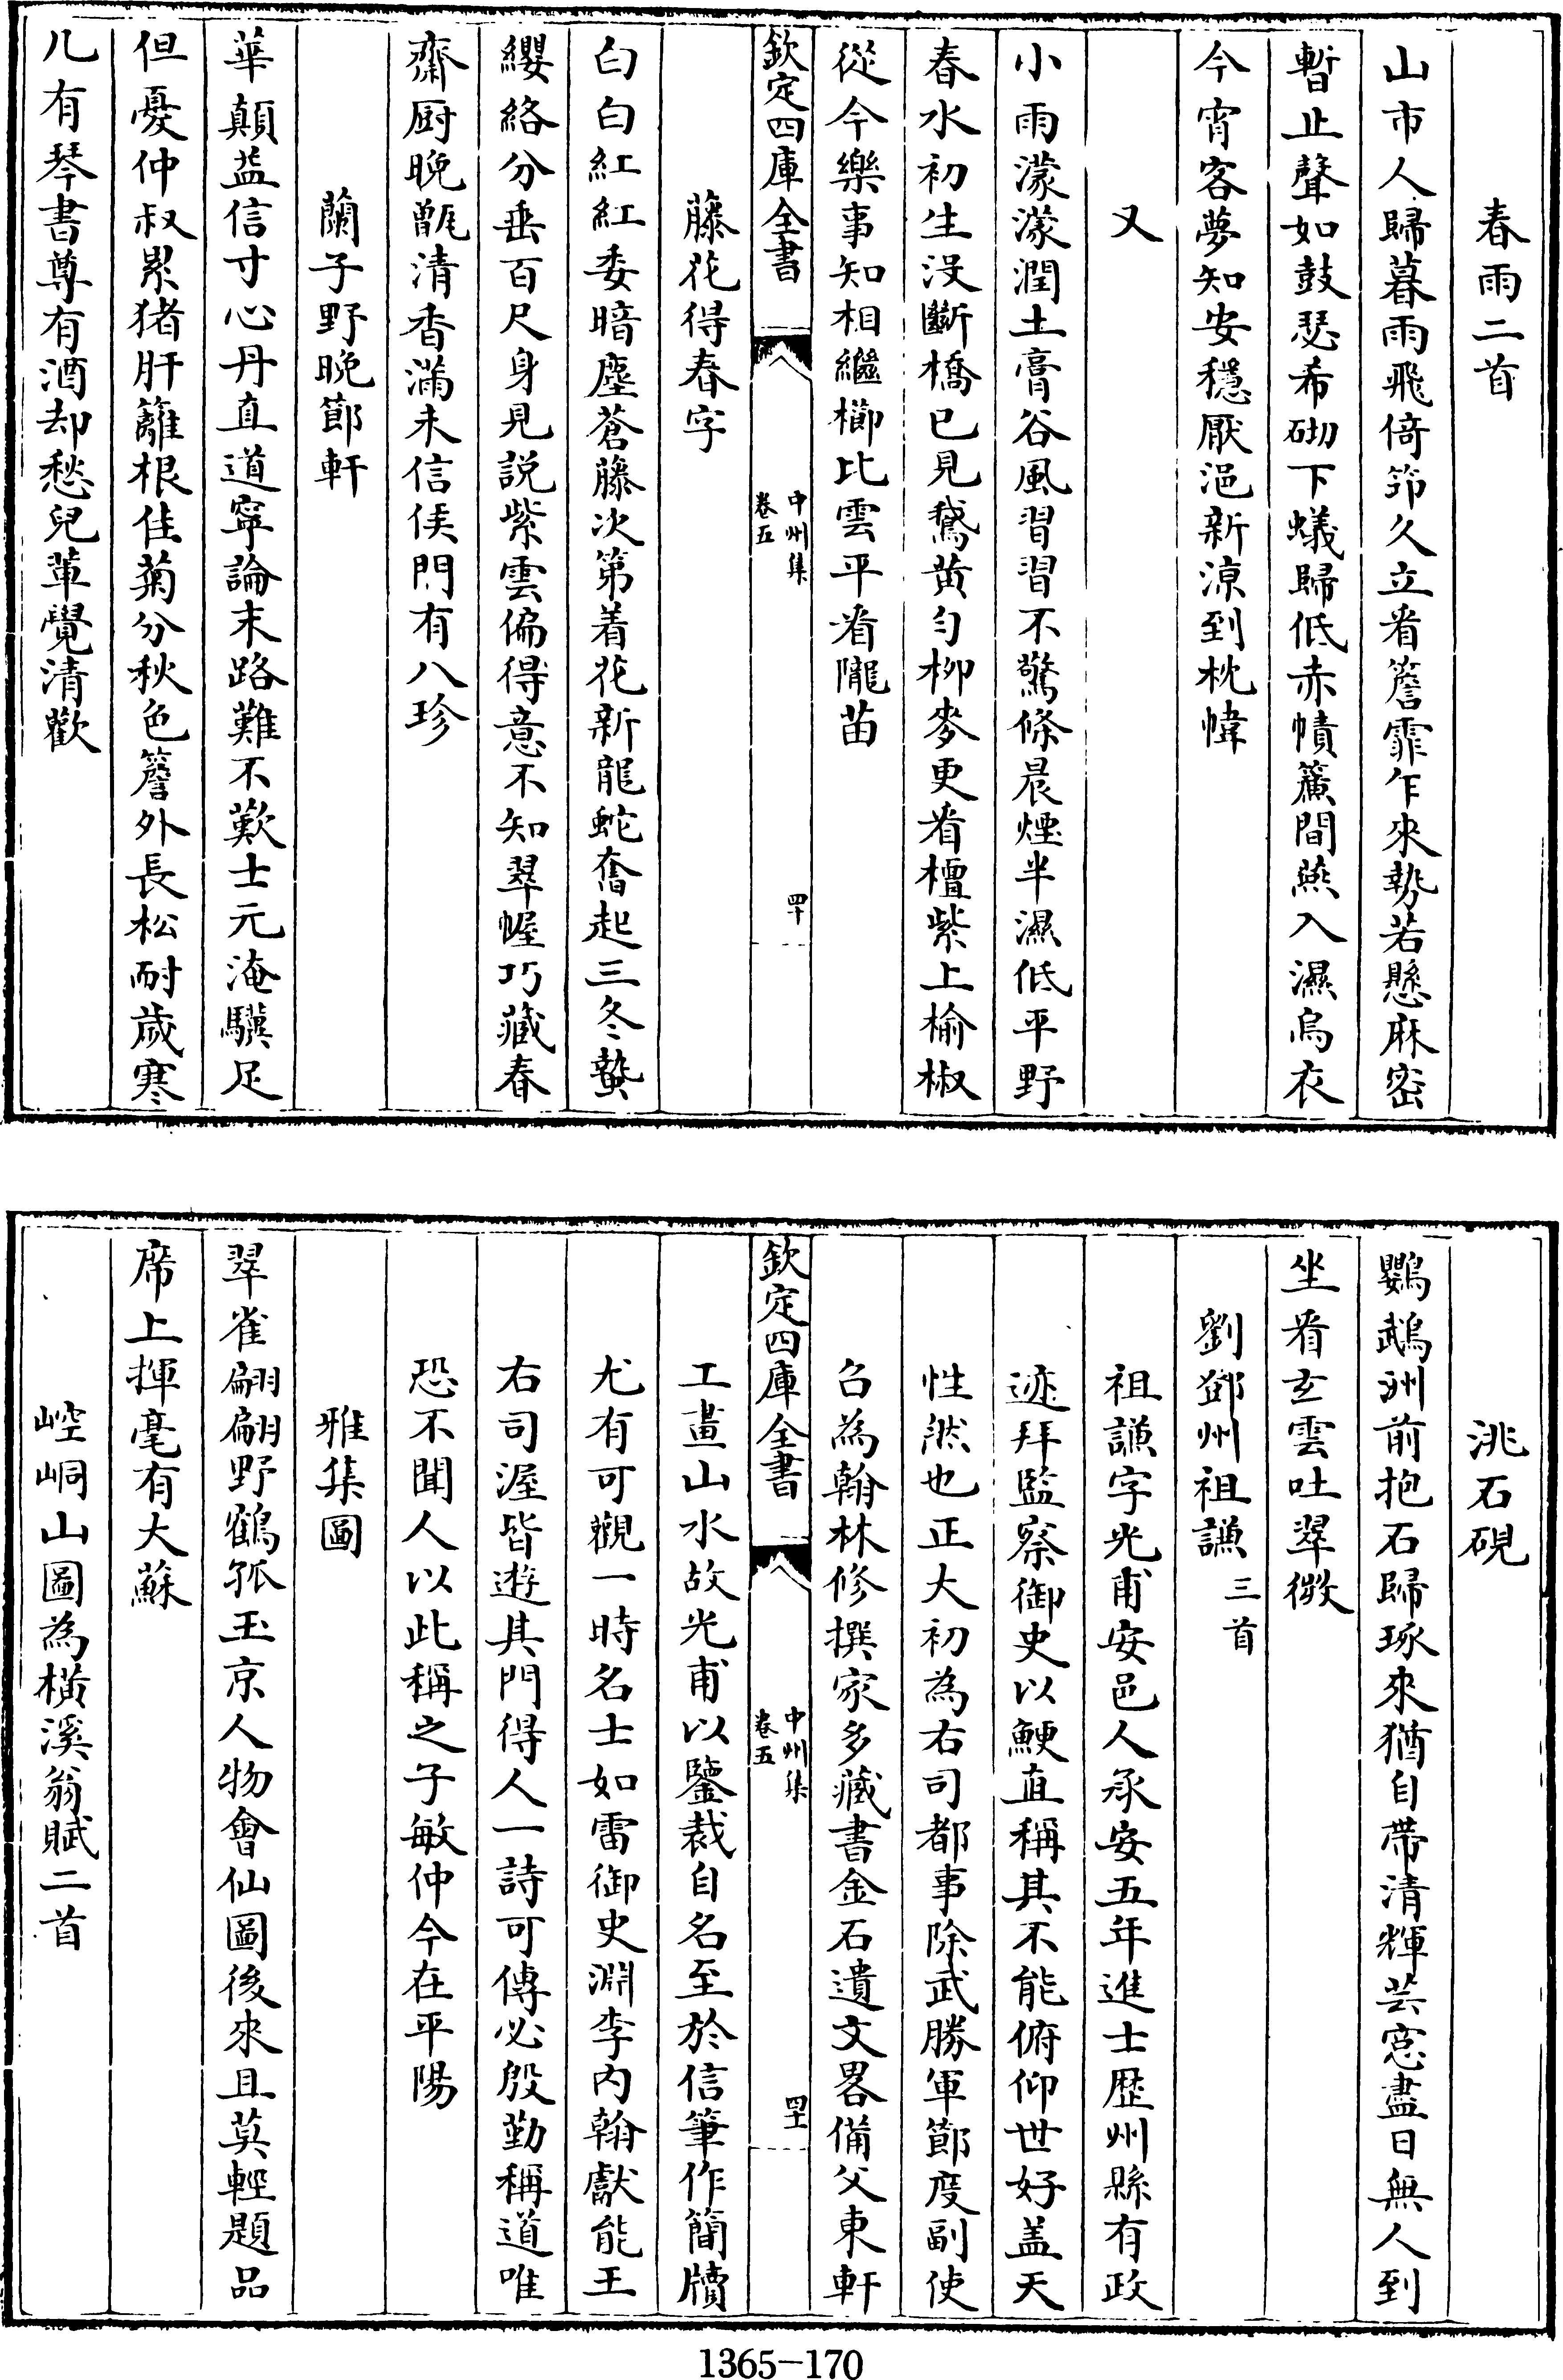 春雨二首
山市人歸暮雨飛倚筇久立看簷霏乍來勢若懸麻密
暫止聲如鼓瑟希砌下蟻歸低赤幘簾間燕入濕烏衣
今宵客夢知安穩厭浥新涼到枕幃
又
小雨濛濛潤土膏谷風習習不驚條晨煙半濕低平野
春水初生没斷橋已見鵞黄勻柳麥更看檀紫上榆椒
從今樂事知相繼櫛比雲平看隴苗
欽定四庫全書
中州集
卷五
四十
藤花得春字
白白紅紅委暗塵蒼藤次第着花新龍蛇奮起三冬蟄
纓絡分垂百尺身見説紫雲偏得意不知翠幄巧藏春
齋厨晚甑清香滿未信侯門有八珍
蘭子野晚節軒
華顛益信寸心丹直道寧論末路難不歎士元淹驥足
但憂仲叔累猪肝籬根佳菊分秋色簷外長松耐歲寒
几有琴書尊有酒却愁兒輩覺清歡
洮石硯
鸚鵡洲前抱石歸琢來猶自帶清輝芸窓盡日無人到
坐看玄雲吐翠微
劉鄧州祖謙三首
祖謙字光甫安邑人承安五年進士歴州縣有政
迹拜監察御史以鯁直稱其不能俯仰世好盖天
性然也正大初為右司都事除武勝軍節度副使
召為翰林修撰家多藏書金石遺文畧備父東軒
欽定四庫全書
中州集
卷五
四十一
工畫山水故光甫以鑒裁自名至於信筆作簡牘
尤有可觀一時名士如雷御史淵李内翰獻能王
右司渥皆遊其門得人一詩可傳必殷勤稱道唯
恐不聞人以此稱之子敏仲今在平陽
雅集圖
翠雀翩翩野鶴孤玉京人物會仙圖後來且莫輕題品
席上揮毫有大蘇
崆峒山圖為橫溪翁賦二首
1365-170